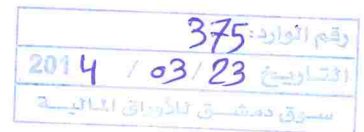 رقم الوارد: 375
التاريخ 23 / 03 / 2014
سوق دمشق للأوراق المالية